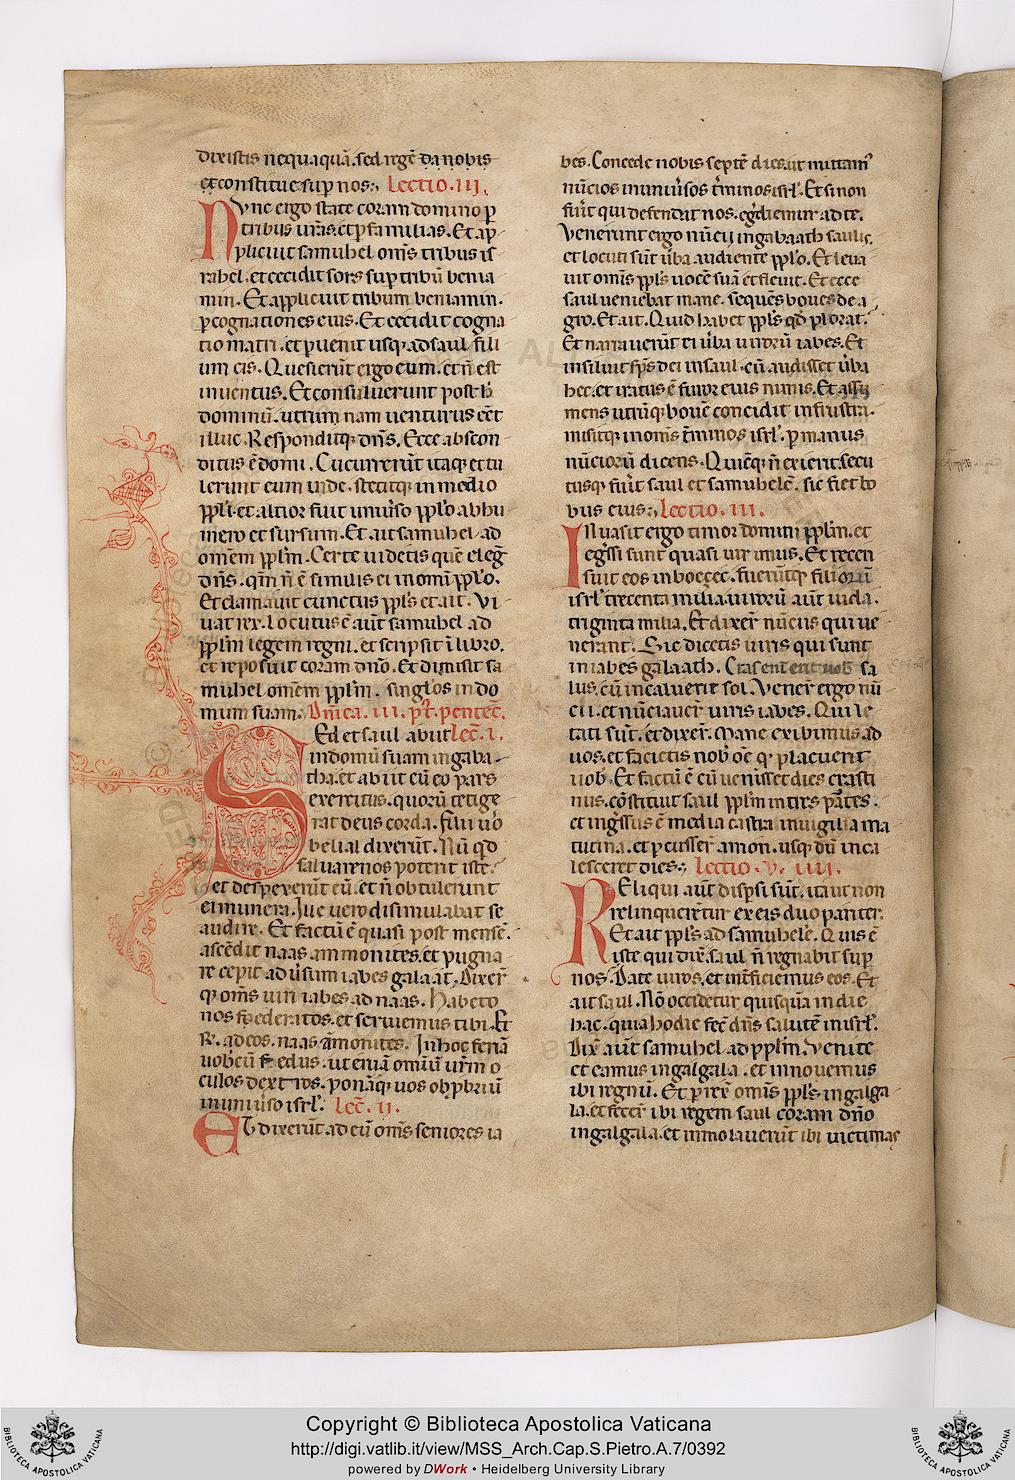 dixistis nequaquā. sed regē da nobis
et constitue sup nos:, Lectio. III.
Nunc ergo state coram domino p
tribus uras. et p familias. Et ap
plicuit samuhel om̄s tribus is
rahel. et cecidit sors sup tribū benia
min. Et applicuit tribum beniamin.
⁊ cognationes eius. Et cecidit cogna
tio matri. et puenit usq; ad saul fili
um cis. Quesierūt ergo eum. et ñ est
inuentus. Et consuluerunt post h̄
dominū. utrum nam uenturus eēt
illuc. Responditq; dn̄s. Ecce abscon
ditus ē domi. Cucurrerūt itaq; et tu
lerunt eum inde. stetitq; in medio
ppli. et altior fuit uniuso pplo ab hu
mero et sursum. Et ait samuhel. ad
omēm pplm. Certe uidetis quē eleḡ
dn̄s. qm̄ ñ ē similis ei in omī pplo.
Et clamauit cunctus ppls et ait. Vi
uat rex. Locutus ē aut̄ samuhel ad
pplm legem regni. et scripsit ī libro.
et reposuit coram dn̄o. Et dimisit sa
muhel omēm pplm. singlos in do
mum suam. Dn̄ica. III. p̄t. pentec̄.
Sed et saul abiit Lec̄. I.
in domū suam in gaba
tha. et abiit cū eo pars
exercitus. quorū tetige
rat deus corda. filii uo
belial dixerūt. Nū qd
saluare nos poterit iste.
et despexerūt eū. et ñ obtulerunt
ei munera. Ille uero disimulabat se
audire. Et factū ē quasi post mensē.
ascēdit naas ammonites. et pugna
re cepit adusum iabes galaat̄. Dixer̄
q; om̄s uiri iabes ad naas. Habeto
nos federatos. et seruiemus tibi. Et
R̄. ad eos. naas āmonites. In hoc feriā
uobcū fedus. ut eruā omiū urm o
culos dextros. ponāq; uos obpbriū
in uniuso isrl. Lec̄. II.
Et dixerūt ad eū om̄s seniores ia
bes. Concede nobis septē dies. ut mittam
nūcios in uniusos tminos isrl. Et si non
fuit qui defendat nos. egdiemur ad te.
Venerunt ergo nūcii in gabaath saulis.
et locuti sūt uba audiente pplo. Et leua
uit omīs ppls uocē suā et fleuit. Et ecce
saul ueniebat mane. sequēs boues de a
gro. Et ait. Quid habet ppls qd plorat.
Et narrauerūt ei uba uirorū iabes. Et
insiluit sps dei in saul. cū audisset uba
hec. et iratus ē furor eius nimis. Et assu
mens utrūq; bouē concidit in frustra.
misitq; in om̄s tminos isrl. p manus
nūciorū dicens. Quicq; ñ exierit. secu
tusq; fuit saul et samuhelē. sic fiet bo
bus eius:, Lectio. III.
Inuasit ergo timor domini pplm. et
egssi sunt quasi uir unus. Et recen
suit eos in bezec. fuerūtq; filiorū
isrl trecenta milia. uirorū aut̄ iuda.
triginta milia. Et dixer̄ nūciis qui ue
nerant. Sic dicetis uiris qui sunt
in iabes galaath. Cras erit uob̄ sa
lus. cū incaluerit sol. Vener̄ ergo nū
cii. et nūciauer̄ uiris iabes. Qui le
tati sūt. et dixer̄. Mane exibimus ad
uos. et facietis nob oē q placuerit
uob. Et factū ē cū uenisset dies crasti
nus. cōstituit saul pplm in tres partes.
et ingssus ē media castra in uigilia ma
tutina. et pcusser̄ amon. usq; dū inca
lesceret dies:, Lectio. V. IIII.
Reliqui aut̄ dispsi sūt. ita ut non
relinquerētur ex eis duo pariter.
Et ait ppls ad samuhelē. Quis ē
iste qui dix̄. saul ñ regnabit sup
nos. Date uiros. et intficiemus eos. Et
ait saul. Nō occidetur quisquā in die
hac. quia hodie fec̄ dn̄s salutē in isrl.
Dix̄ aut̄ samuhel. ad pplm. Venite
et eamus in galgala. et innouemus
ibi regnū. Et prex̄ om̄s ppls in galga
la. et fecer̄ ibi regem saul coram dn̄o
in galgala. et immolauerūt ibi uictimas
Copyright © Biblioteca Apostolica Vaticana
http://digi.vatlib.it/view/MSS_Arch.Cap.S.Pietro.A.7/0392
powered by DWork • Heidelberg University Library
BIBLIOTECA APOSTOLICA VATICANA
BIBLIOTECA APOSTOLICA VATICANA